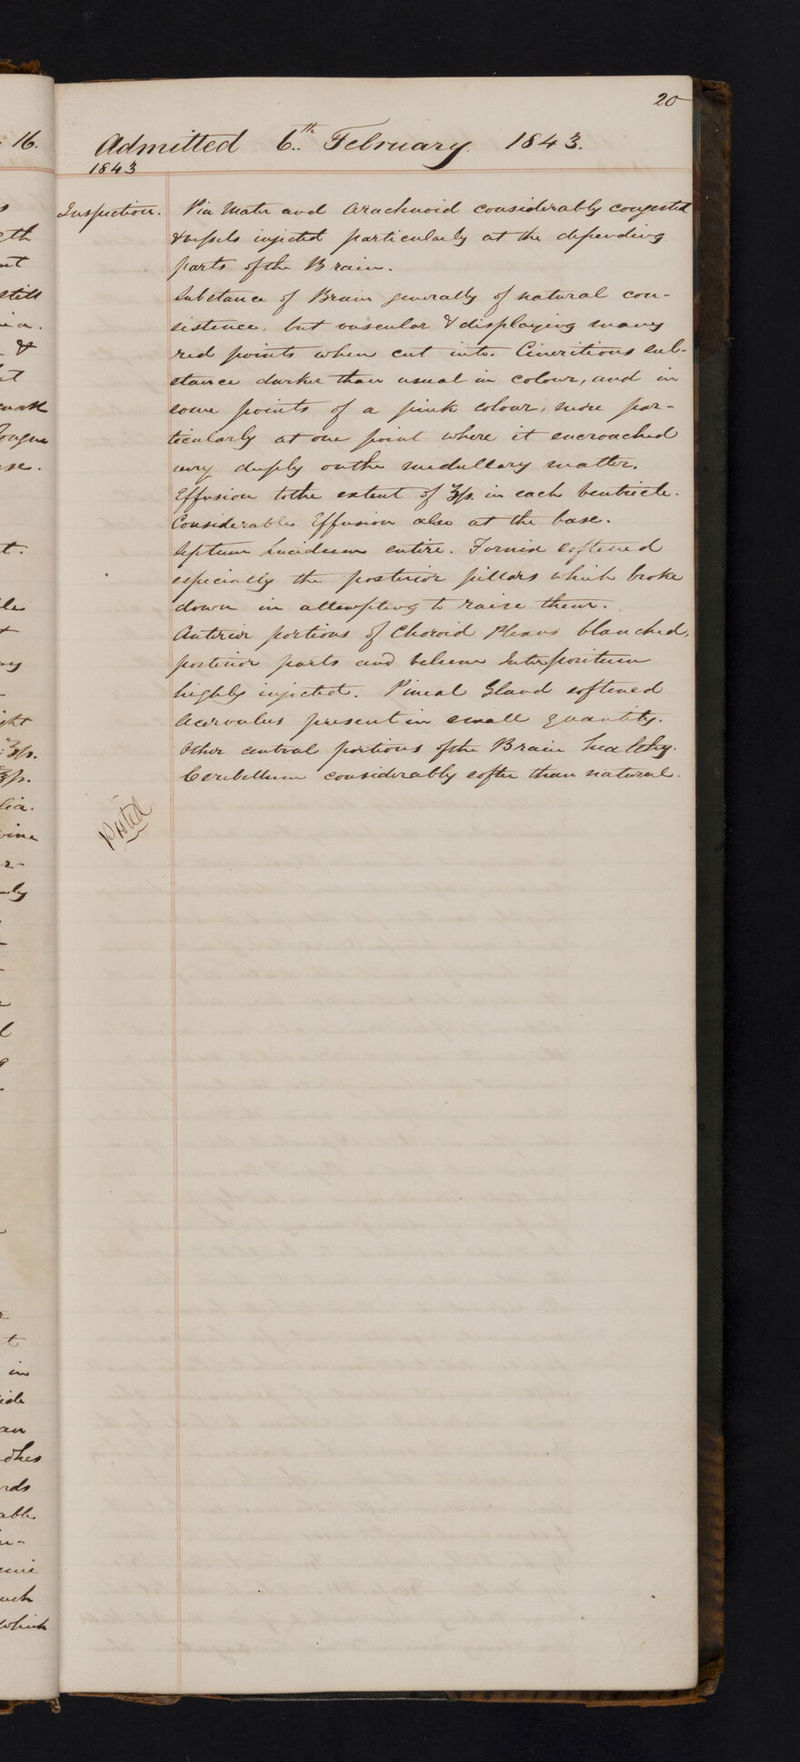 20
Admitted 6th February. 1843.
1843
Inspection. Pia Mater and Arachnoid considerably congested
& vessels injected particularly at the depending
parts of the Brain.
Substance of Brain generally of natural con-
sistence, but vascular & displaying many
red points when cut into. Cineritious sub-
stance darker than usual in colour, and in
some points of a pink colour, more par-
ticularly at one point where it encroached
very deeply on the medullary matter.
Effusion to the extent of ʒſs. in each ventricle.
Considerable Effusion also at the base.
Septum Lucidum entire. Fornix softened
especially the posterior pillars which broke
down in attempting to raise them.
Anterior portions of Choroid Plexus blanched,
posterior parts and velum Interpositum
highly injected. Pineal Gland softened
Acervulus present in small quantity.
Other central portions of the Brain healthy.
Cerebellum considerably softer than natural.
Posted
16.
eth
still
&
Tongue
t.
ight
ʒſs.
ʒſs.
lia.
r-
t
in
which